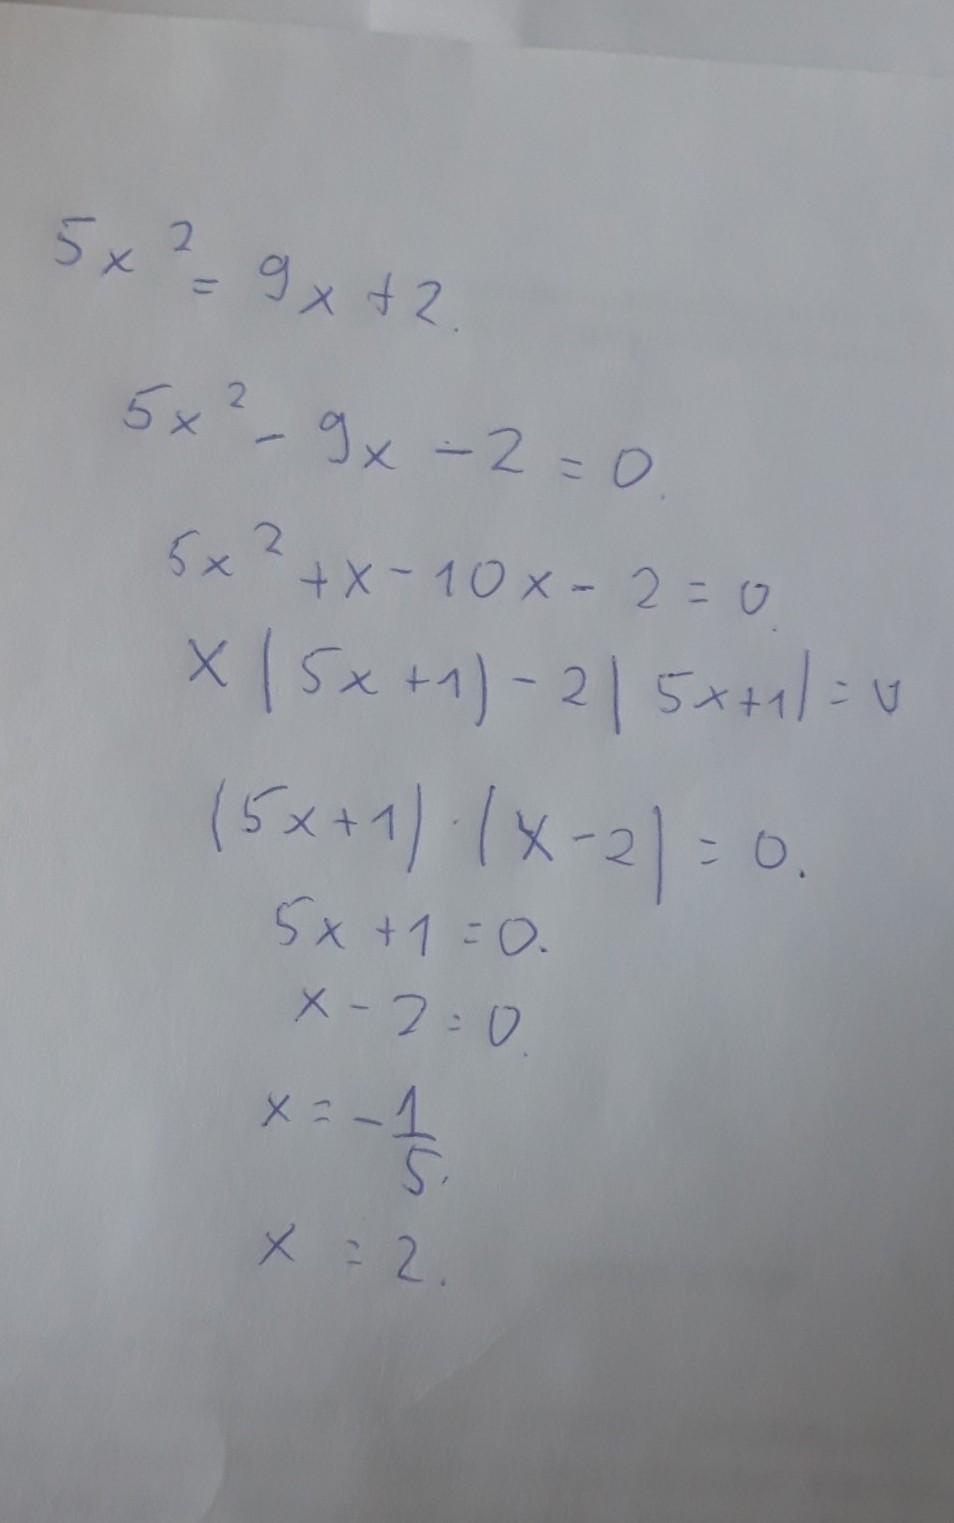 5x² = 9x + 2.
5x² - 9x - 2 = 0.
5x² + x - 10x - 2 = 0.
x(5x+1) - 2(5x+1) = 0
(5x+1) · (x-2) = 0.
5x + 1 = 0.
x - 2 = 0.
x = -1/5.
x = 2.